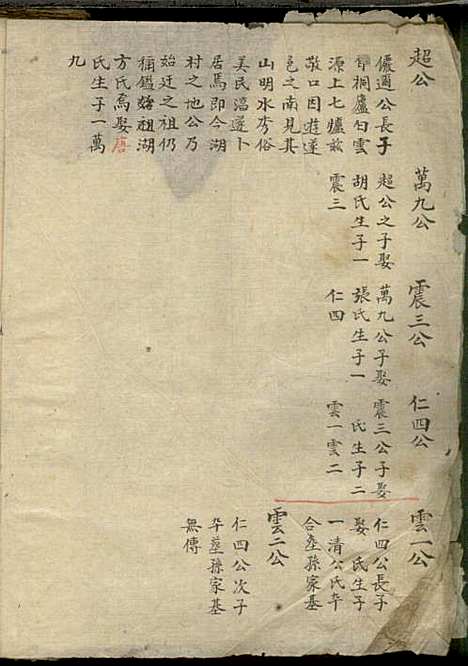 超公
儼通公長子
曾桐廬白雲
源上七爐敢
敬口因遊遂
邑之南見其
山明水秀俗
美民温遂卜
居焉即今湖
村之地公乃
始迁之祖仍
稱鑑塘祖湖
方氏焉娶唐
氏生子一萬
九
萬九公
超公之子娶
胡氏生子一
震三
震三公
萬九公子娶
張氏生子一
仁四
仁四公
震三公子娶
氏生子二
雲一雲二
雲一公
仁四公長子
娶 氏生子
一清公氏卒
合塟孫家基
雲二公
仁四公次子
卒塟孫家基
無傳